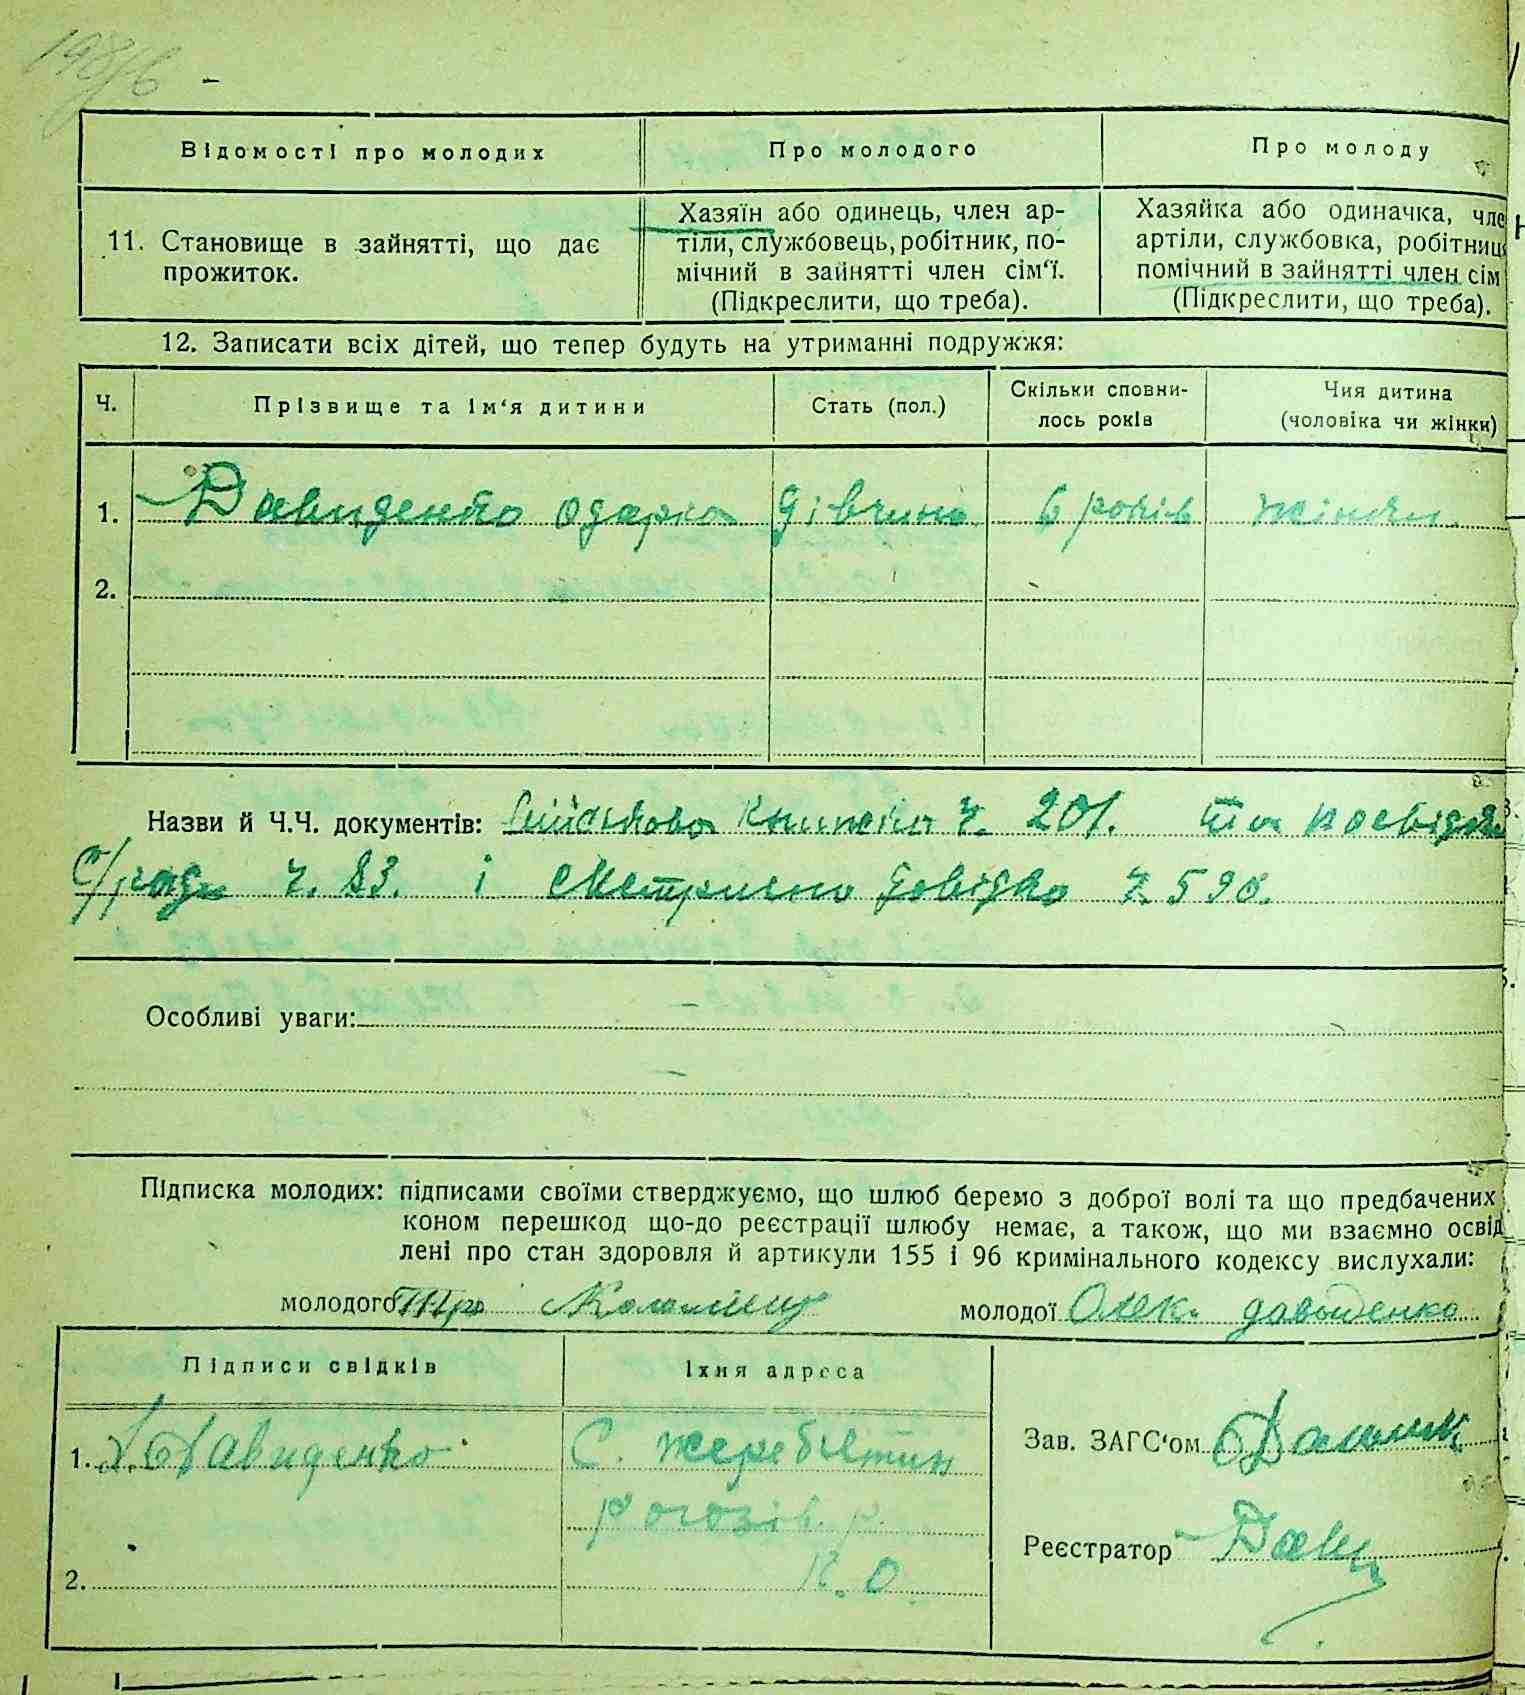 198/в
Відомості про молодих
Про молодого
Про молоду
11. Становище в зайнятті, що дає
прожиток.
Хазяїн або одинець, член ар-
тіли, службовець, робітник, по-
мічний в зайнятті член сім'ї.
(Підкреслити, що треба).
Хазяйка або одиначка, чле
артіли, службовка, робітниця
помічний в зайнятті член сім
(Підкреслити, що треба).
12. Записати всіх дітей, що тепер будуть на утриманні подружжя:
Ч.
Прізвище та ім'я дитини
Стать (пол.)
Скільки сповни-
лось років
Чия дитина
(чоловіка чи жінки)
1. Давиденко Одарка дівчина 6 років жінки
2.
Назви й Ч.Ч. документів: книжка ч. 201. та посвідка
С/ради ч. 83. і довідка ч. 596.
Особливі уваги:
Підписка молодих: підписами своїми стверджуємо, що шлюб беремо з доброї волі та що предбачених
коном перешкод що-до реєстрації шлюбу немає, а також, що ми взаємно освід
лені про стан здоровля й артикули 155 і 96 кримінального кодексу вислухали:
молодого
молодої Олек. давыденко
Підписи свідків
Їхня адреса
1. Давиденко
С. Жеребятин
Рогозів. р.
К. О.
2.
Зав. ЗАГС'ом
Реєстратор